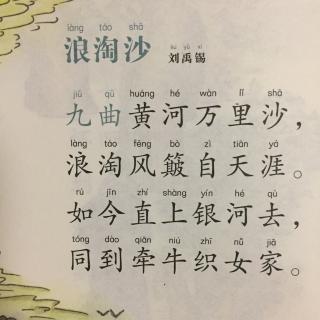 làng táo shā
浪淘沙
liú yǔ xī
刘禹锡
jiǔ qū huáng hé wàn lǐ shā
九曲黄河万里沙，
làng táo fēng bǒ zì tiān yá
浪淘风簸自天涯。
rú jīn zhí shàng yín hé qù
如今直上银河去，
tóng dào qiān niú zhī nǚ jiā
同到牵牛织女家。